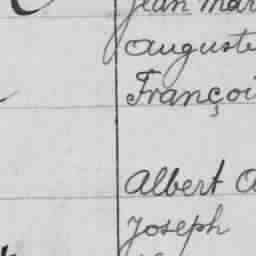 Jean Mar
Auguste
Françoi
Albert A
Joseph